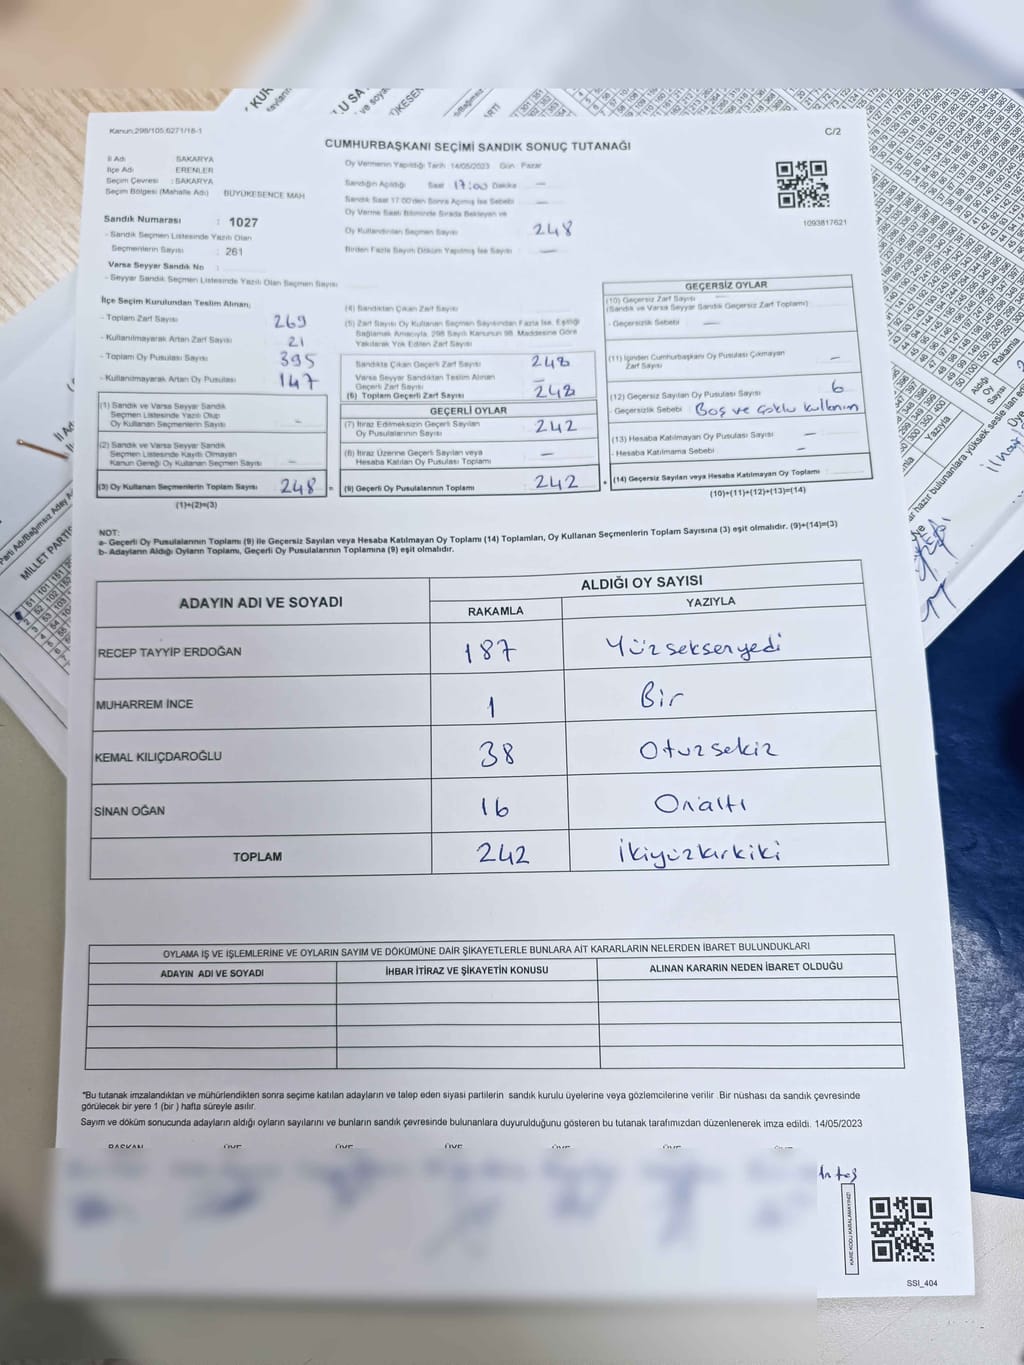 Kanun:298/105;6271/18-1
C/2
CUMHURBAŞKANI SEÇİMİ SANDIK SONUÇ TUTANAĞI
İl Adı : SAKARYA
İlçe Adı : ERENLER
Seçim Çevresi : SAKARYA
Seçim Bölgesi (Mahalle Adı) BÜYÜKESENCE MAH
Oy Vermenin Yapıldığı Tarih :14/05/2023 Gün : Pazar
Sandığın Açıldığı Saat 17:00 Dakika —
Sandık Saat 17:00'den Sonra Açılmış İse Sebebi —
Oy Verme Saati Bitiminde Sırada Bekleyen ve
Oy Kullandırılan Seçmen Sayısı 248
Birden Fazla Sayım Döküm Yapılmış İse Sayısı —
1093817621
Sandık Numarası : 1027
- Sandık Seçmen Listesinde Yazılı Olan
Seçmenlerin Sayısı : 261
Varsa Seyyar Sandık No :
- Seyyar Sandık Seçmen Listesinde Yazılı Olan Seçmen Sayısı :
İlçe Seçim Kurulundan Teslim Alınan;
- Toplam Zarf Sayısı 269
- Kullanılmayarak Artan Zarf Sayısı 21
- Toplam Oy Pusulası Sayısı 395
- Kullanılmayarak Artan Oy Pusulası 147
(1) Sandık ve Varsa Seyyar Sandık
Seçmen Listesinde Yazılı Olup
Oy Kullanan Seçmenlerin Sayısı —
(2) Sandık ve Varsa Seyyar Sandık
Seçmen Listesinde Kayıtlı Olmayan
Kanun Gereği Oy Kullanan Seçmen Sayısı —
(3) Oy Kullanan Seçmenlerin Toplam Sayısı 248
(1)+(2)=(3)
(4) Sandıktan Çıkan Zarf Sayısı
(5) Zarf Sayısı Oy Kullanan Seçmen Sayısından Fazla İse, Eşitliği
Sağlamak Amacıyla, 298 Sayılı Kanunun 98. Maddesine Göre
Yakılarak Yok Edilen Zarf Sayısı
Sandıkta Çıkan Geçerli Zarf Sayısı 248
Varsa Seyyar Sandıktan Teslim Alınan
Geçerli Zarf Sayısı —
(6) Toplam Geçerli Zarf Sayısı 248
GEÇERLİ OYLAR
(7) İtiraz Edilmeksizin Geçerli Sayılan
Oy Pusulalarının Sayısı 242
(8) İtiraz Üzerine Geçerli Sayılan veya
Hesaba Katılan Oy Pusulası Toplamı —
= (9) Geçerli Oy Pusulalarının Toplamı 242
GEÇERSİZ OYLAR
(10) Geçersiz Zarf Sayısı
(Sandık ve Varsa Seyyar Sandık Geçersiz Zarf Toplamı)
- Geçersizlik Sebebi —
(11) İçinden Cumhurbaşkanı Oy Pusulası Çıkmayan
Zarf Sayısı —
(12) Geçersiz Sayılan Oy Pusulası Sayısı 6
- Geçersizlik Sebebi Boş ve Çoklu kullanım
(13) Hesaba Katılmayan Oy Pusulası Sayısı —
- Hesaba Katılmama Sebebi —
+ (14) Geçersiz Sayılan veya Hesaba Katılmayan Oy Toplamı
(10)+(11)+(12)+(13)=(14)
NOT:
a- Geçerli Oy Pusulalarının Toplamı (9) ile Geçersiz Sayılan veya Hesaba Katılmayan Oy Toplamı (14) Toplamları, Oy Kullanan Seçmenlerin Toplam Sayısına (3) eşit olmalıdır. (9)+(14)=(3)
b- Adayların Aldığı Oyların Toplamı, Geçerli Oy Pusulalarının Toplamına (9) eşit olmalıdır.
ADAYIN ADI VE SOYADI ALDIĞI OY SAYISI
RAKAMLA YAZIYLA
RECEP TAYYİP ERDOĞAN 187 Yüzseksenyedi
MUHARREM İNCE 1 Bir
KEMAL KILIÇDAROĞLU 38 Otuzsekiz
SİNAN OĞAN 16 Onaltı
TOPLAM 242 İkiyüzkırkiki
OYLAMA İŞ VE İŞLEMLERİNE VE OYLARIN SAYIM VE DÖKÜMÜNE DAİR ŞİKAYETLERLE BUNLARA AİT KARARLARIN NELERDEN İBARET BULUNDUKLARI
ADAYIN ADI VE SOYADI İHBAR İTİRAZ VE ŞİKAYETİN KONUSU ALINAN KARARIN NEDEN İBARET OLDUĞU
*Bu tutanak imzalandıktan ve mühürlendikten sonra seçime katılan adayların ve talep eden siyasi partilerin sandık kurulu üyelerine veya gözlemcilerine verilir .Bir nüshası da sandık çevresinde
görülecek bir yere 1 (bir ) hafta süreyle asılır.
Sayım ve döküm sonucunda adayların aldığı oyların sayılarını ve bunların sandık çevresinde bulunanlara duyurulduğunu gösteren bu tutanak tarafımızdan düzenlenerek imza edildi. 14/05/2023
BAŞKAN ÜYE ÜYE ÜYE ÜYE ÜYE ÜYE
KARE KODU KARALAMAYINIZ!
SSI_404